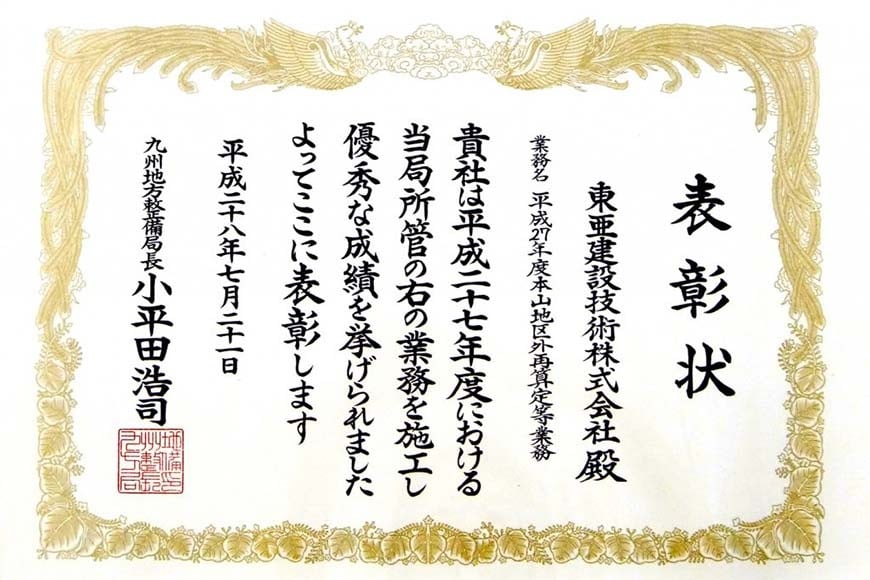 表彰状
東亜建設技術株式会社 殿
業務名 平成27年度本山地区外再算定等業務
貴社は平成二十七年度における
当局所管の右の業務を施工し
優秀な成績を挙げられました
よってここに表彰します
平成二十八年七月二十一日
九州地方整備局長 小平田浩司